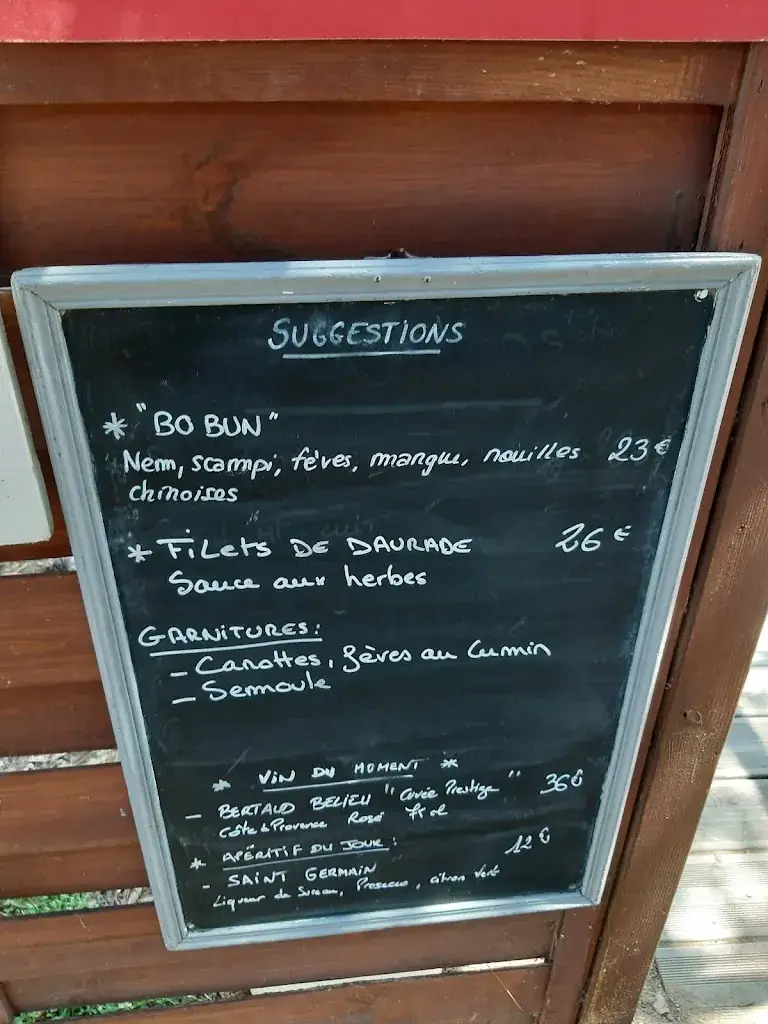 SUGGESTIONS
* "BO BUN"
Nem, scampi, fèves, mangue, nouilles 23€
chinoises
* FILets DE DAURADE 26€
Sauce aux herbes
GARNITURES:
- Carottes, fèves au Cumin
- Semoule
* VIN DU MOMENT *
- BERTAUD BELIEU "Cuvée Prestige" 36€
Côte de Provence Rosé 75cl
* APÉRITIF DU JOUR: 12€
- SAINT GERMAIN
Liqueur de Sureau, Prosecco, citron vert